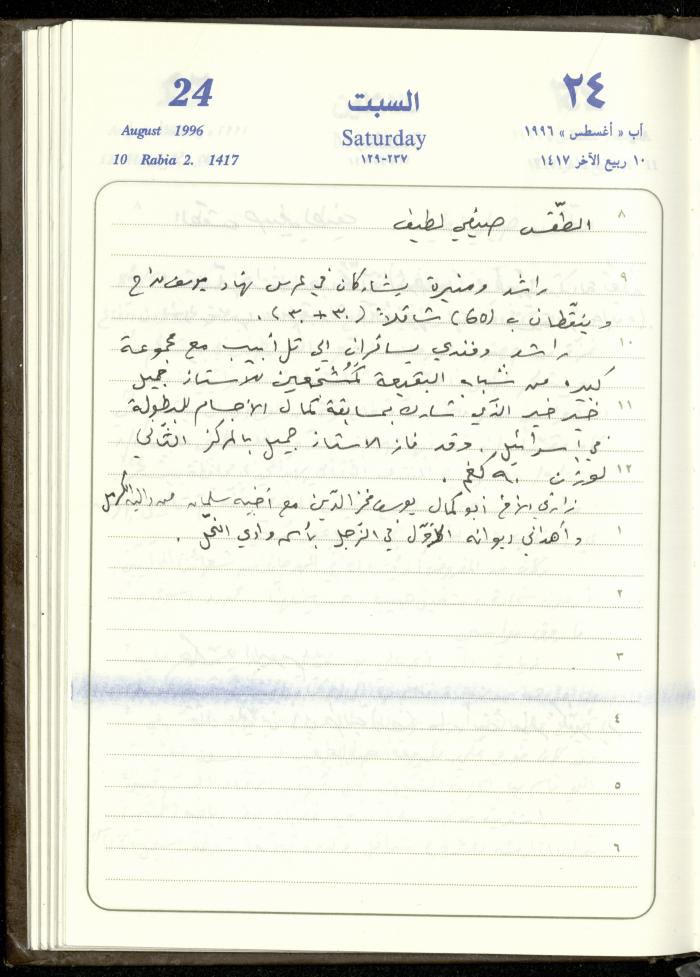 24
السبت
٢٤
August 1996
Saturday
آب « أغسطس » ١٩٩٦
10 Rabia 2. 1417
١٢٩-٢٣٧
١٠ ربيع الآخر ١٤١٧
٨
الطّقس صيفي لطيف
٩
راشد ومنيرة يشاركان في عرس نهاد يوسف مداح
وينقّطان ب (٦٥) شاقلاً (٣٠ + ٣٠).
١٠
راشد وفندي يسافران الى تل أبيب مع مجموعة
كبيره من شباب البقيعة كمُشجّعين للأستاذ جميل
١١
خير خير الذي شارك بمسابقة كمال الأجسام للبطولة
في اسرائيل. وقد فاز الاستاذ جميل بالمركز الثّاني
١٢
لوزن ٩٠ كغم.
زارني الأخ أبو كمال يوسف فخر الدّين مع أخيه سلمان من دالية الكرمل
١
وأهداني ديوانه الأوّل في الزّجل بأسم وادي النحل.
٢
٣
٤
٥
٦